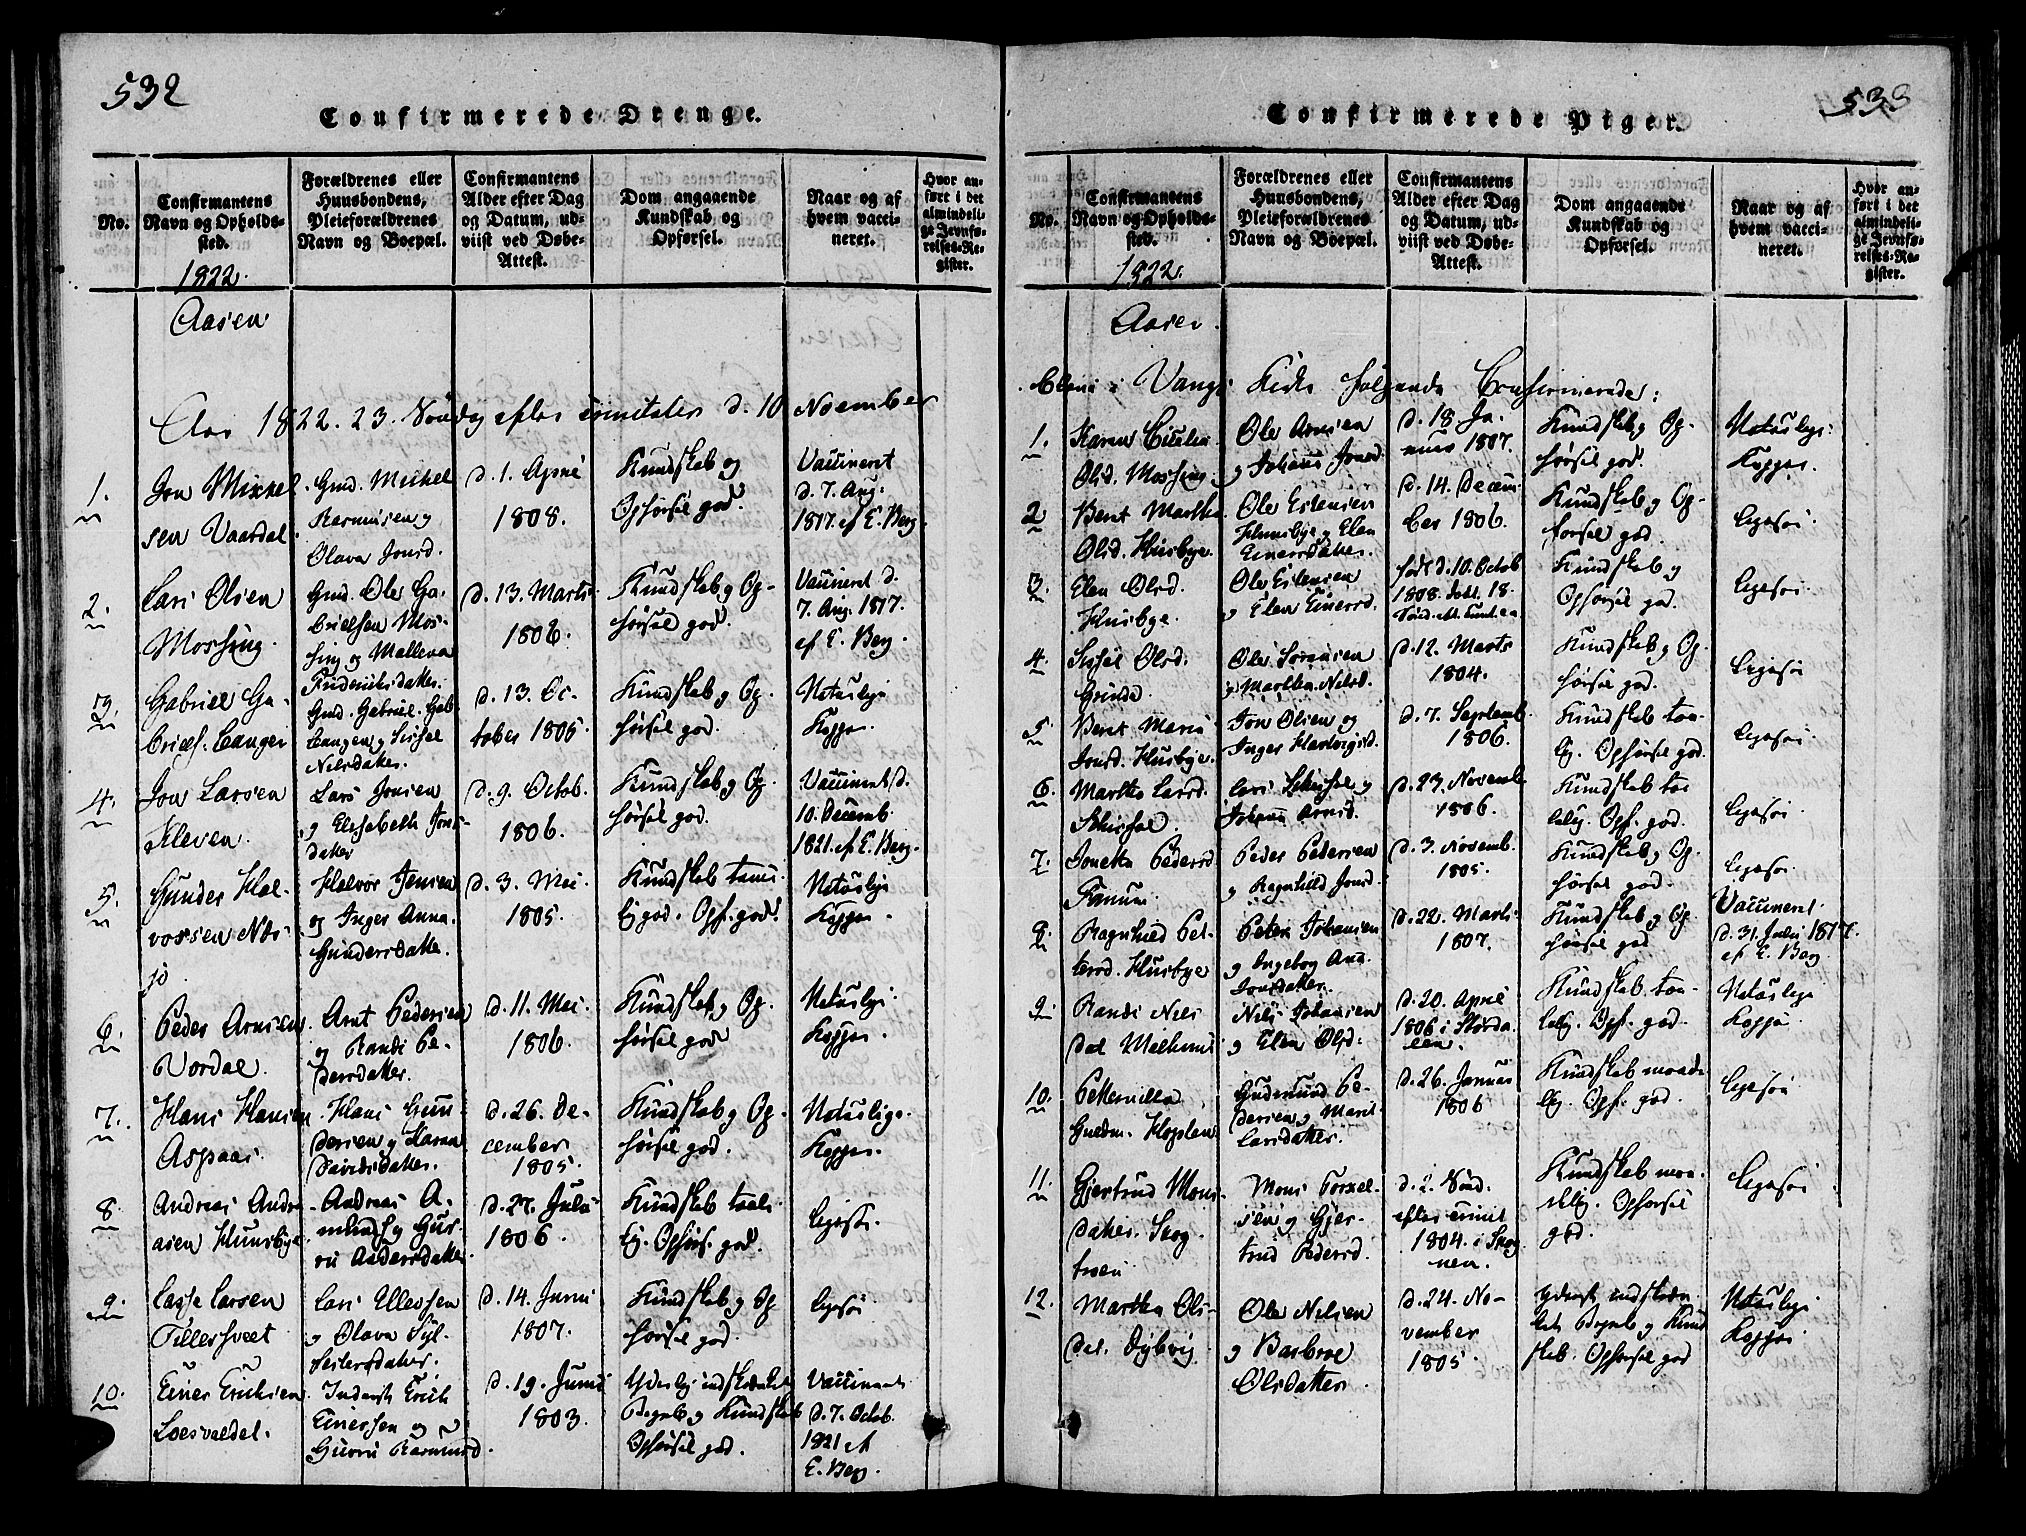 532
Confirmerede Drenge.
No.
Confirmantens
Navn og Opholds-
sted.
Forældrenes eller
Huusbondens,
Pleieforældrenes
Navn og Boepæl.
Confirmantens
Alder efter Dag
og Datum, ud-
viist ved Døbe-
Attest.
Dom angaaende
Kundskab og
Opførsel.
Naar og af
hvem vacci-
neret.
Hvor an-
ført i det
almindeli-
ge Jevnfø-
relses-Re-
gister.
1822.
Aasen
Aar 1822. 23. Søndag efter trinitatis d. 10 November
1.
Jon Mikkel-
sen Vaardal.
Gmd. Mickel
Rasmusen og
Olava Jonsd.
d. 1. April
1808.
Kundskab og
Opførsel god.
Vaccineret
d. 7. Aug.
1817. af E. Berg.
2.
Lars Olsen
Mossing.
Gmd. Ole Ga-
brielsen Mos-
sing og Mallena
Friderichsdatter.
d. 13. Marts
1806.
Kundskab og Op-
førsel god.
Vaccineret d.
7. Aug. 1817.
af E. Berg.
3.
Gabriel Ga-
briels. Langer
Gmd. Gabriel Gab
Langen og Sissel
Nilsdatter.
d. 13. Oc-
tober 1805.
Kundskab og Op-
førsel god.
Naturlige
Kopper.
4.
Jon Larsen
Kleven.
Lars Jonsen
og Elisabeth Jons-
datter
d. 9. Octob.
1806.
Kundskab og Op-
førsel god.
Vaccineret d.
10. Decemb.
1821. af E. Berg.
5.
Gunder Hal-
vorsen Næs-
jo
Halvor Jensen
og Inger Anna
Gundersdatter.
d. 3. Mai
1805.
Kundskab taaμ-
lig god. Opf. god.
Naturlige
Kopper.
6.
Peder Arnsen
Vordal.
Arnt Pedersen
og Randi Pe-
dersdatter.
d. 11. Mai
1806.
Kundskab og Op-
førsel god
Naturlige
Kopper.
7.
Hans Hansen
Aspaas.
Hans Gun-
dersen og Karen
Davidsdatter.
d. 26. De-
cember
1805.
Kundskab og Op-
førsel god.
Naturlige.
Kopper.
8.
Andreas Andre-
asen Huusbye
Andreas A-
mlunds og Gur-
ru Andersdatter
d. 27. Julii
1806.
Kundskab taale-
lig. Opførs. god.
Ligesaa.
9.
Lasse Larsen
Tillersveet
Lars Ellevsen
og Olava Syl-
festersdatter.
d. 14. Junii
1807.
Kundskab og Op
førsel god.
Ligesaa
10.
Einer Ericksen
Loesvaldet.
Inderst Erich
Einersen og
Gurru Rasmusd.
d. 19. Junii
1803.
Yderlig indskrænket
Begreb og Kundskab
Opførsel god.
Vaccineret
d. 7. Octob.
1821 af
E. Berg.
533
Confirmerede Piger.
No.
Confirmantens
Navn og Opholds-
sted.
Forældrenes eller
Huusbondens,
Pleieforældrenes
Navn og Boepæl.
Confirmantens
Alder efter Dag
og Datum, ud-
viist ved Døbe-
Attest.
Dom angaaende
Kundskab og
Opførsel.
Naar og af
hvem vacci-
neret.
Hvor an-
ført i det
almindeli-
ge Jevnfø-
relses-Re-
gister.
1822.
Aasen.
bleve i Vangs Kirke følgende Confirmerede:
1.
Karen
Olsd. Mossing.
Ole Arnsen
og Johanna Jonsd.
d. 18 Ja-
nuar 1807.
Kundskab og Op-
førsel god.
Naturlige
Kopper.
2
Beret Martha
Olsd. Husbye.
Ole Estensen
Huusbye og Elen
Einersdatter.
d. 14. Decem-
ber 1806.
Kundskab og Op-
førsel god.
Ligesaa
3.
Elen Olsd.
Husbye.
Ole Estensen
og Elen Einersd.
født d. 10. Octob
1808. 18.
Kundskab og
Opførsel god.
Ligesaa.
4.
Sissel Olsd.
Grinde.
Ole Sørensen
og Martha Nilsd.
d. 12. Marts
1804.
Kundskab og Op-
førsel god.
Ligesaa
5
Beret Maria
Jonsd. Husbye.
Jon Olsen og
Inger Hartvigsd.
d. 7. Septemb.
1806.
Kundskab taa-
lig. Opførsel god.
Ligesaa.
6.
Martha Larsd.
Schiesel.
Lars Schiesel og
Johanna Arnsd.
d. 23. Novemb.
1806.
Kundskab taa-
lelig. Opf. god.
Ligesaa.
7.
Jonetta Pedersd.
Fanum.
Peder Pedersen
og Ragnhild Jonsd.
d. 3. Novemb.
1805.
Kundskab og Op-
førsel god.
Ligesaa.
8.
Ragnhild Pet-
tersd. Husbye
Peter Johansen
og Ingebog Ana
Jonsdatter.
d. 22. Marts
1807.
Kundskab og Op
førsel god
Vaccineret
d. 31. Julii 1817.
af E. Berg.
9.
Randi Nils
dat. Melhuus
Nils Johansen
og Elen Olsd.
d. 20. April
1806 i Størda-
len.
Kundskab taa-
lelig. Opf. god.
Naturlige
Kopper.
10.
Petternilla
Gudm. Hoplen
Gudmund Pe-
dersen og Marit
Larsdatter.
d. 26. Januar
1806
Kundskab maade-
lig. Opf. god.
Ligesaa
11.
Gjertrud Mons-
datter. Skog-
nen
Mons Torkel-
sen og Gjer-
trud Pedersd.
d. 2. Sønd.
efter trinit
1804. i Skog-
nen.
Kundskab maa-
delig. Opførsel
god.
Ligesaa
12.
Martha Ols-
dat. Dybvig
Ole Nilsen
og Barbroe
Olsdatter
d. 24. No-
vember
1805.
Yderst indskræn-
ket Begreb og Kund-
skab. Opførsel god
Naturlige
Kopper